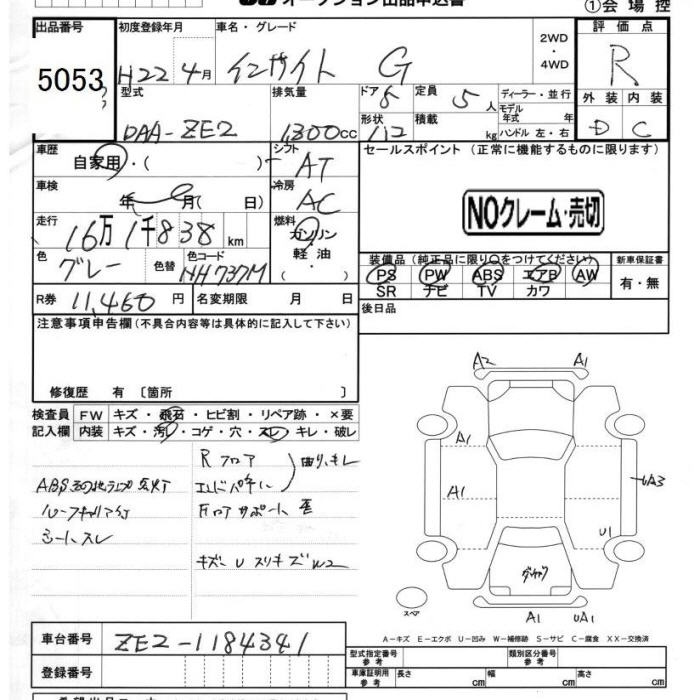 オークション出品申込書
①会場控
出品番号 初度登録年月 車名・グレード 2WD ・ 4WD 評価点
5053 H22 4月 インサイト G R
型式 排気量 ドア 定員 5人 ディーラー・並行 外装 内装
DAA-ZE2 1300cc 形状 積載 kg モデル年式 年 D C
ハンドル 左・右
車歴 自家用・( ) シフト AT セールスポイント (正常に機能するものに限ります)
車検 年 月( 日) 冷房 AC
NOクレーム・売切
走行 16万1千838km 燃料 ガソリン 軽油・( )
色 グレー 色替 色コード NH737M
装備品(純正品に限り○をつけてください) 新車保証書
PS PW ABS エアB AW 有・無
SR ナビ TV カワ
R券 11,460円 名変期限 月 日 後日品
注意事項申告欄(不具合内容等は具体的に記入して下さい)
修復歴 有〔箇所 〕
検査員 FW キズ・飛石・ヒビ割・リペア跡・×要
記入欄 内装 キズ・汚レ・コゲ・穴・スレ・キレ・破レ
A2 A1
A1
A1
UA3
U1
A1 UA1
スペア
Rフロア
曲り、キレ
エンドパネル
シートスレ
A-キズ E-エクボ U-凹み W-補修跡 S-サビ C-腐食 XX-交換済
車台番号 ZE2-1184341
登録番号
型式指定番号 参考 類別区分番号 参考
車庫証明用 参考 長さ cm 幅 cm 高さ cm